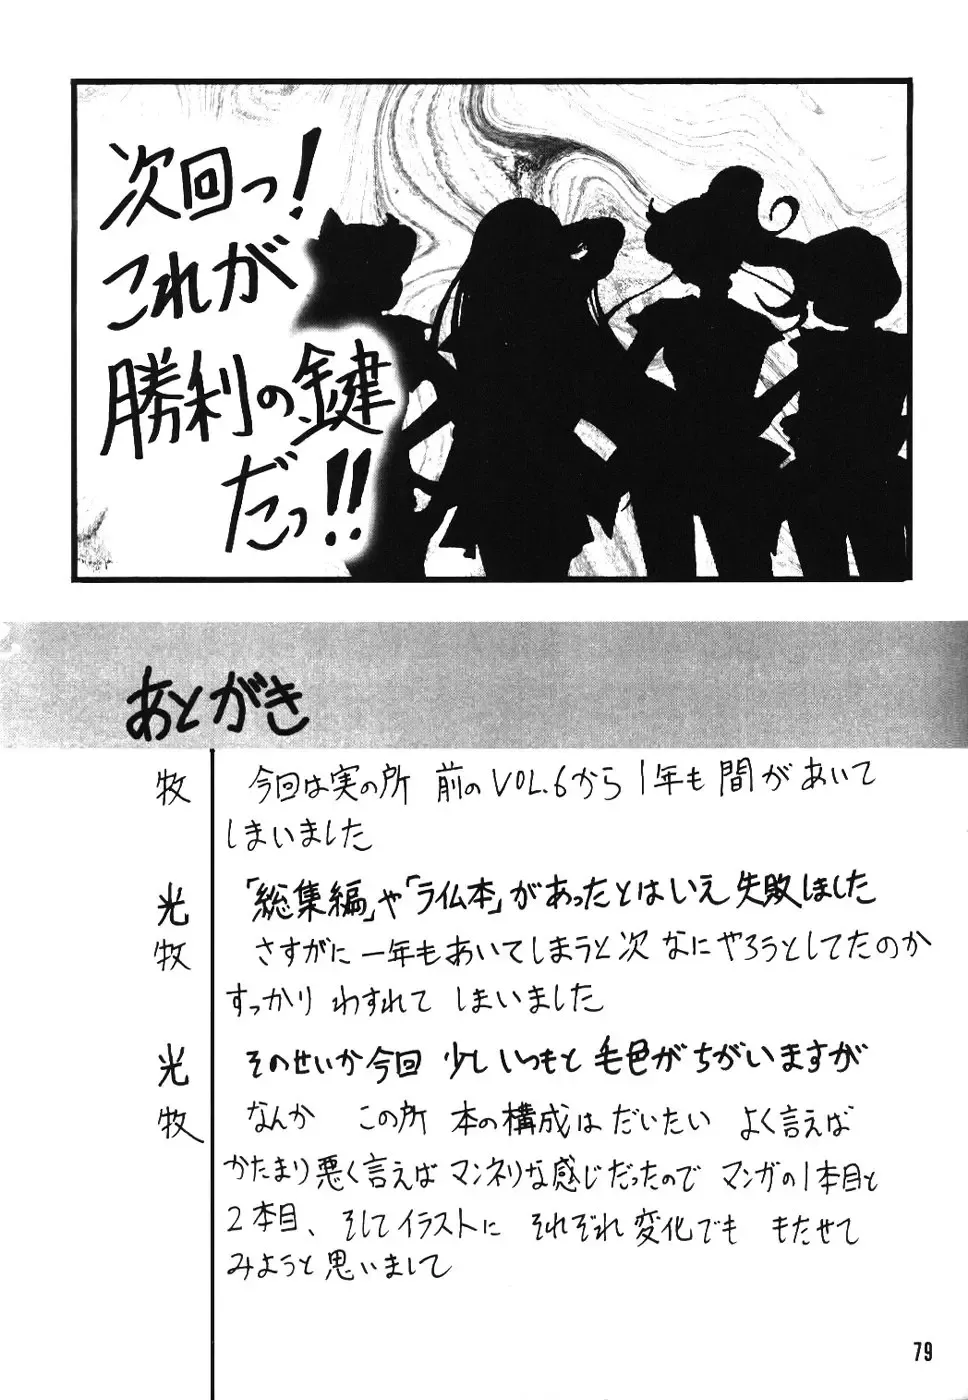 次回っ!
これが
勝利の鍵
だっ!!
あとがき
牧 今回は実の所 前のVOL.6から1年も間があいて
しまいました
光 「総集編」や「ライム本」があったとはいえ失敗しました
牧 さすがに一年もあいてしまうと次なにやろうとしてたのか
すっかりわすれてしまいました
光 そのせいか今回少しいつもと毛色がちがいますが
牧 なんか この所 本の構成はだいたい よく言えば
かたまり悪く言えばマンネリな感じだったのでマンガの1本目と
2本目、そしてイラストに それぞれ変化でも もたせて
みようと思いまして
79